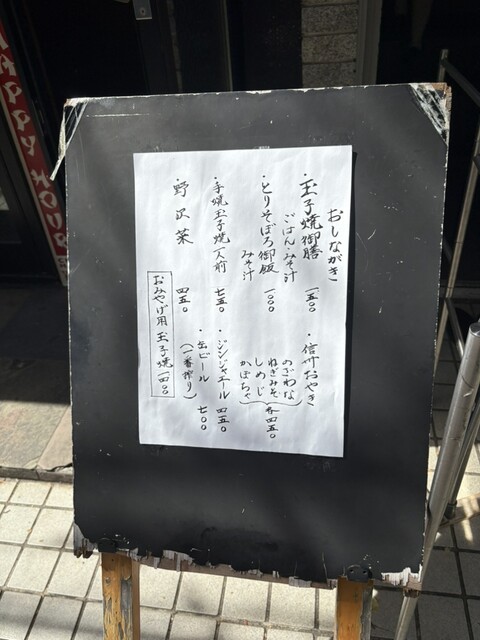 おしながき
・玉子焼御膳 一五〇
ごはん・みそ汁
・とりそぼろ御飯 一〇〇
みそ汁
・手焼玉子焼一人前 七五〇
・野沢菜 四五〇
・信州おやき
のざわな
ねぎみそ
しめじ
かぼちゃ
各四五〇
・ジンジャエール 四五〇
・缶ビール 七〇〇
(一番搾り)
おみやげ用 玉子焼 一四〇〇
HAPPY HOUR